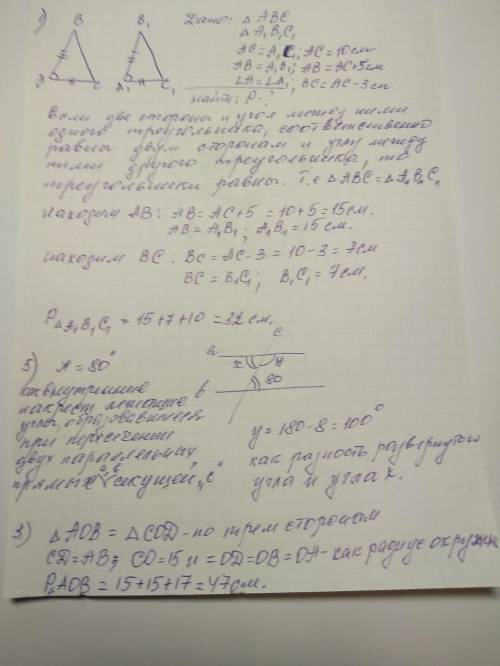 1)
B
B₁
A
C
A₁
C₁
Дано: △ ABC
△ A₁B₁C₁
AC = A₁C₁; AC = 10 см
AB = A₁B₁; AB = AC + 5 см
∠A = ∠A₁; BC = AC - 3 см
Найти: P - ?
Если две стороны и угол между ними
одного треугольника, соответственно
равны двум сторонам и углу между
ними другого треугольника, то
треугольники равны. Т.е △ABC = △A₁B₁C₁
Находим AB: AB = AC + 5 = 10 + 5 = 15 см.
AB = A₁B₁; A₁B₁ = 15 см.
Находим BC: BC = AC - 3 = 10 - 3 = 7 см
BC = B₁C₁; B₁C₁ = 7 см.
P△A₁B₁C₁ = 15 + 7 + 10 = 32 см.
5) x = 80°
как внутренние
накрест лежащие
углы, образовавшиеся
при пересечении
двух параллельных
прямых а, в секущей „с"
с
а
x
y
в
80
y = 180 - 8 = 100°
как разность развернутого
угла и угла x.
3) △ AOB = △ COD - по трем сторонам
CD = AB; CO = 15 и = OD = OB = OA - как радиус окружн
P△AOB = 15 + 15 + 17 = 47 см.